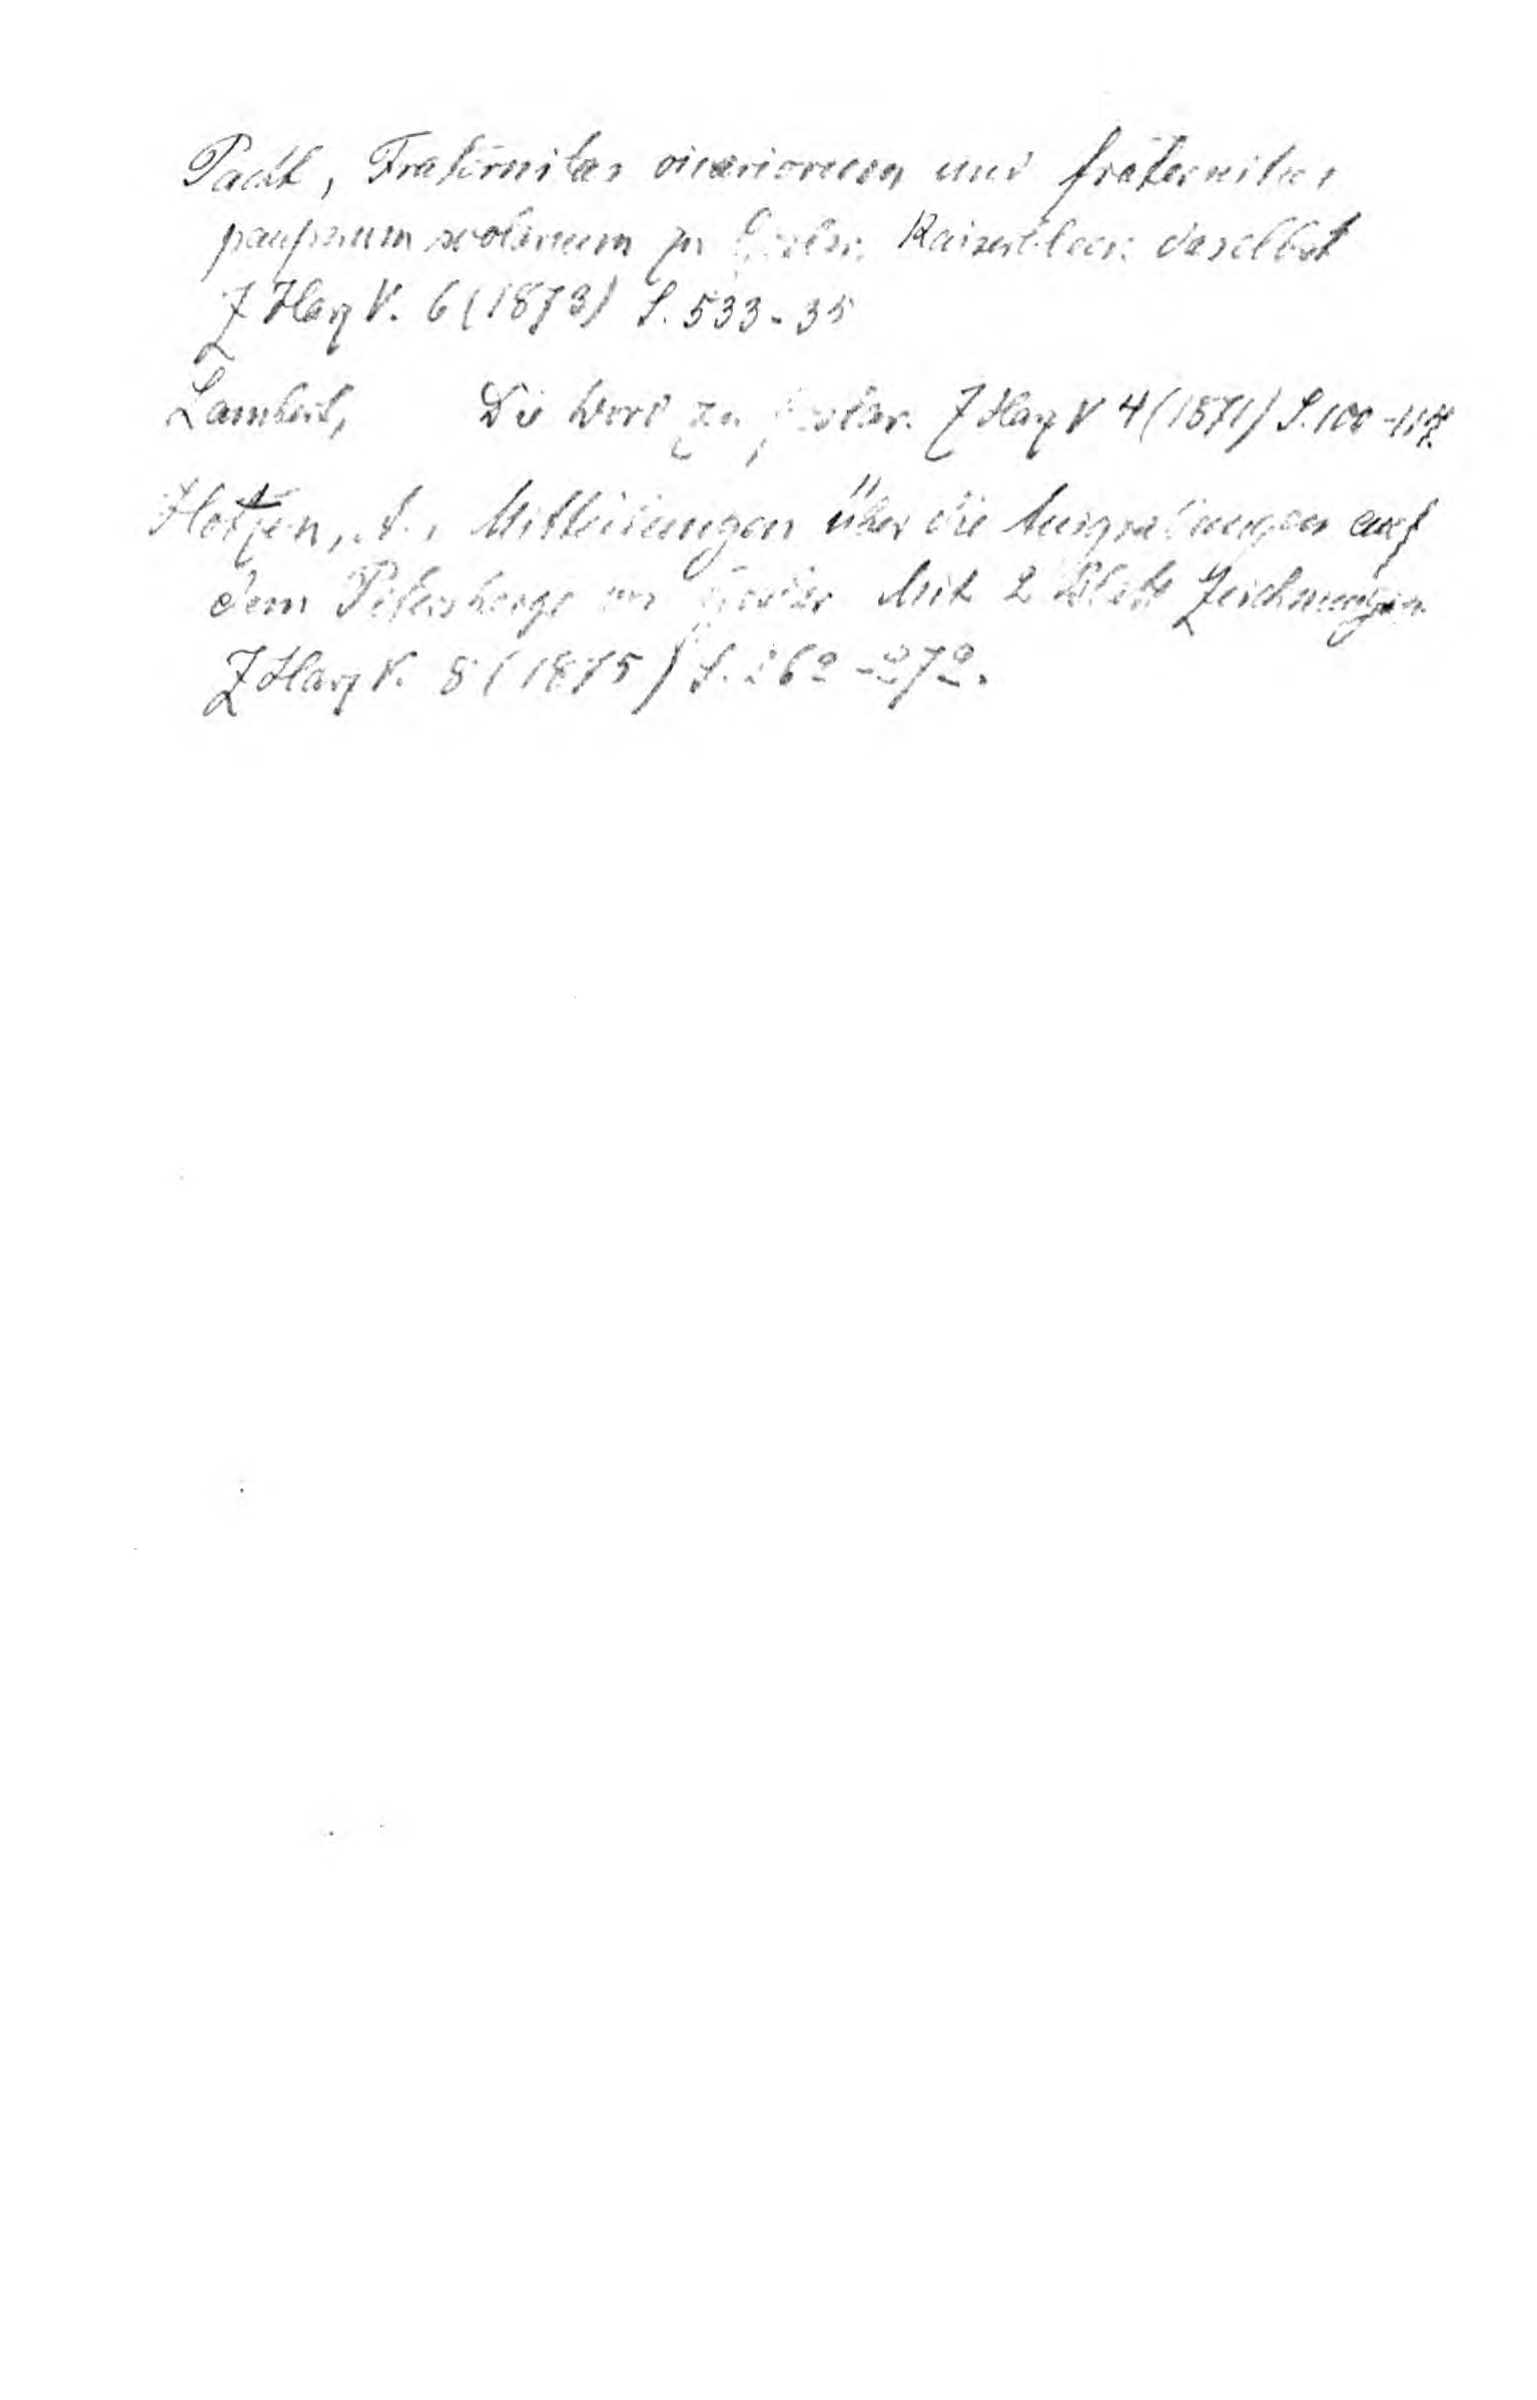 Pacht, Fraternitas vicariorum und fraternitas
pauperum scolarium zu Goslar. Kaiserbleek daselbst
Z Harz V. 6 (1873) S. 533-35
Lambert, Die Word zu Goslar. Z Harz V 4 (1871) S. 100
Hotzen, A., Mitteilungen über die Ausgrabungen auf
dem Petersberge Goslar Mit 2 Blatt Zeichnungen
Z Harz V. 8 (1875) S. 262-272.